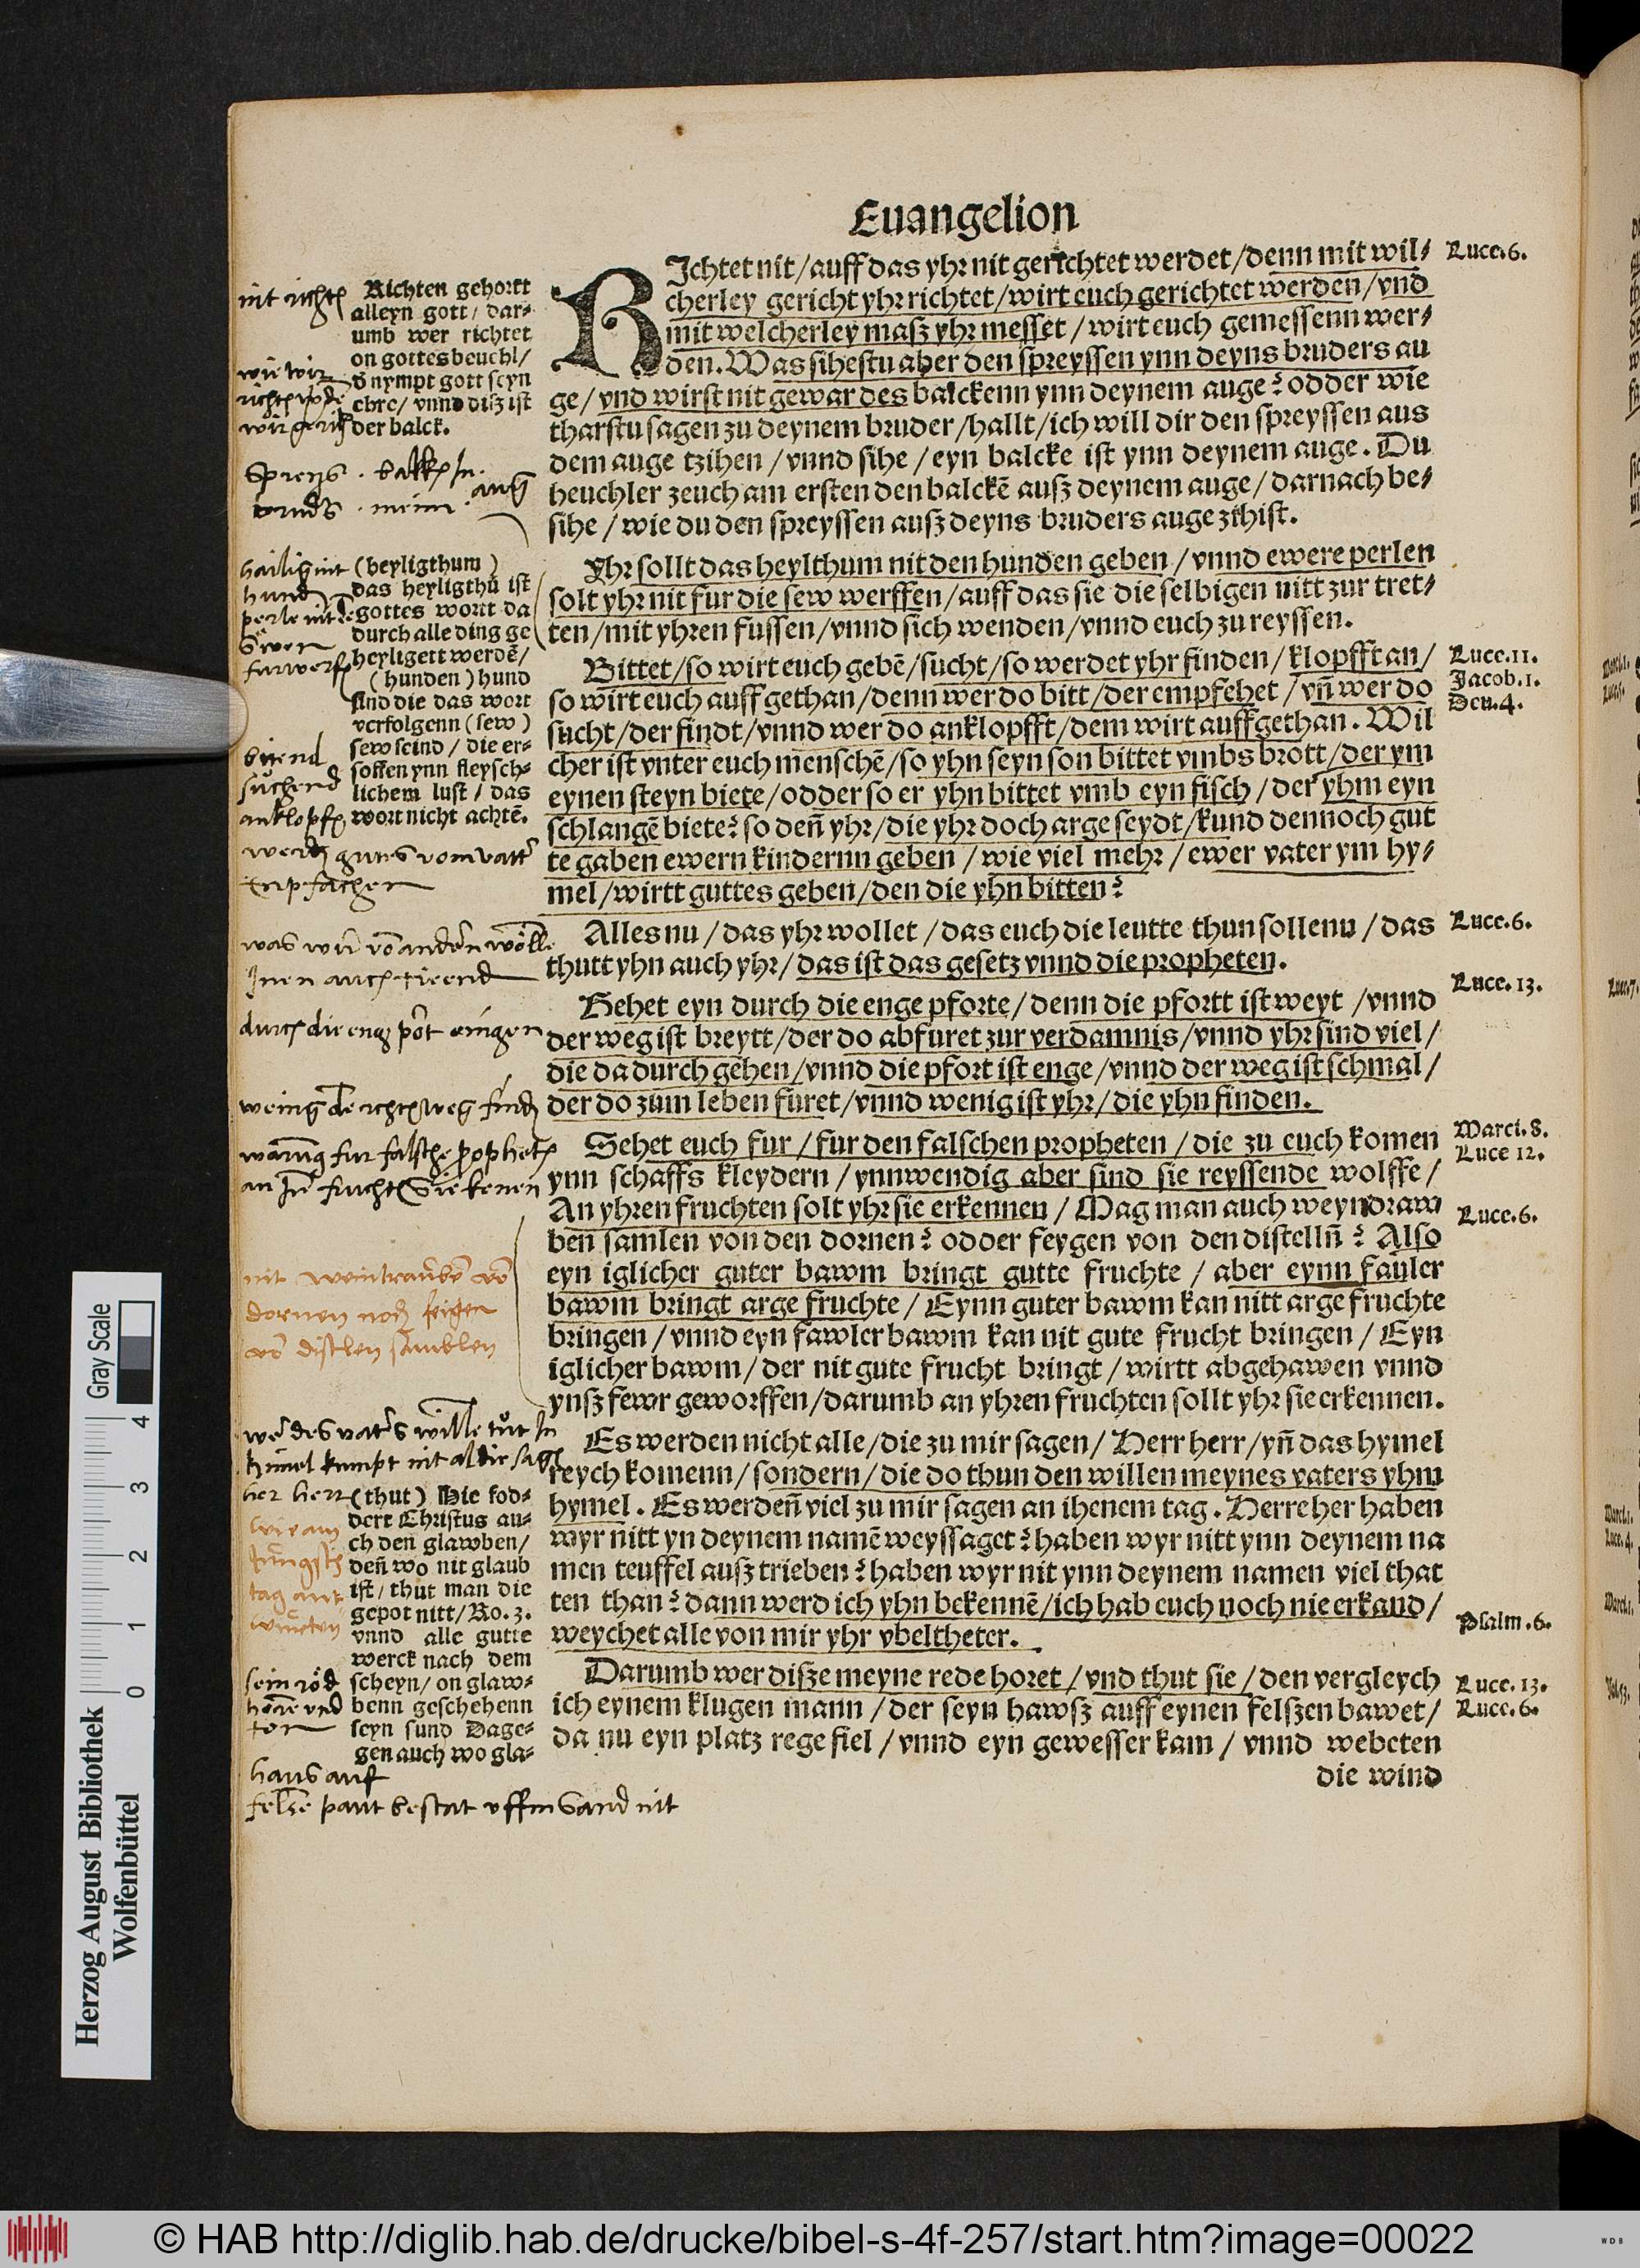 Euangelion
RIchtet nit/auff das yhr nit gerichtet werdet/denn mit wil⸗
cherley gericht yhr richtet/wirt euch gerichtet werden/vnd
mit welcherley masz yhr messet/wirt euch gemessenn wer⸗
den. Was sihestu aber den spreyssen ynn deyns bruders au
ge/vnd wirst nit gewar des balckenn ynn deynem auge? odder wie
tharstu sagen zu deynem bruder/hallt/ich will dir den spreyssen aus
dem auge tzihen/vnnd sihe/eyn balcke ist ynn deynem auge. Du
heuchler zeuch am ersten den balckē ausz deynem auge/darnach be⸗
sihe/wie du den spreyssen ausz deyns bruders auge zihist.
Yhr sollt das heylthum nit den hunden geben/vnnd ewere perlen
solt yhr nit fur die sew werffen/auff das sie die selbigen nitt zur tret⸗
ten/mit yhren fussen/vnnd sich wenden/vnnd euch zu reyssen.
Bittet/so wirt euch gebē/sucht/so werdet yhr finden/klopfft an/
so wirt euch auff gethan/denn wer do bitt/der empfehet/vñ wer do
sucht/der findt/vnnd wer do anklopfft/dem wirt auffgethan. Wil
cher ist vnter euch menschē/so yhn seyn son bittet vmbs brott/der ym
eynen steyn biete/odder so er yhn bittet vmb eyn fisch/der yhm eyn
schlangē biete? so deñ yhr/die yhr doch arge seydt/kund dennoch gut
te gaben ewern kindernn geben/wie viel mehr/ewer vater ym hy⸗
mel/wirtt guttes geben/den die yhn bitten?
Alles nu/das yhr wollet/das euch die leutte thun sollenn/das
thutt yhn auch yhr/das ist das gesetz vnnd die propheten.
Gehet eyn durch die enge pforte/denn die pfortt ist weyt/vnnd
der weg ist breytt/der do abfuret zur verdamnis/vnnd yhr sind viel/
die da durch gehen/vnnd die pfort ist enge/vnnd der weg ist schmal/
der do zum leben furet/vnnd wenig ist yhr/die yhn finden.
Sehet euch fur/fur den falschen propheten/die zu euch komen
ynn schaffs kleydern/ynnwendig aber sind sie reyssende wolffe/
An yhren fruchten solt yhr sie erkennen/Mag man auch weyndraw
ben samlen von den dornen? odder feygen von den distelln? Also
eyn iglicher guter bawm bringt gutte fruchte/aber eynn fauler
bawm bringt arge fruchte/Eynn guter bawm kan nitt arge fruchte
bringen/vnnd eyn fawler bawm kan nit gute frucht bringen/Eyn
iglicher bawm/der nit gute frucht bringt/wirtt abgehawen vnnd
ynsz fewr geworffen/darumb an yhren fruchten sollt yhr sie erkennen.
Es werden nicht alle/die zu mir sagen/Herr herr/yñ das hymel
reych komenn/sondern/die do thun den willen meynes vaters yhm
hymel. Es werden viel zu mir sagen an ihenem tag. Herre her haben
wyr nitt yn deynem namē weyssaget? haben wyr nitt ynn deynem na
men teuffel ausz trieben? haben wyr nit ynn deynem namen viel that
ten than? dann werd ich yhn bekennē/ich hab euch noch nie erkand/
weychet alle von mir yhr vbeltheter.
Darumb wer disze meyne rede horet/vnd thut sie/den vergleych
ich eynem klugen mann/der seyn hawsz auff eynen felszen bawet/
da nu eyn platz rege fiel/vnnd eyn gewesser kam/vnnd webeten
die wind
Richten gehortt
alleyn gott/dar⸗
umb wer richtet
on gottes beuehl/
d nympt gott seyn
ehre/vnnd disz ist
der balck.
(heyligthum)
das heyligthū ist
gottes wortt da
durch alle ding ge
heyligett werdē/
(hunden) hund
sind die das wort
verfolgenn (sew)
sew seind/die er⸗
soffen ynn fleysch⸗
lichem lust/das
wort nicht achtē.
(thut) Hie fod⸗
dert Christus au⸗
ch den glawben/
deñ wo nit glaub
ist/thut man die
gepot nitt/Ro. 3.
vnnd alle gutte
werck nach dem
scheyn/on glaw⸗
benn geschehenn
seyn sund Dage⸗
gen auch wo gla⸗
Luce. 6.
Luce. 11.
Jacob. 1.
Den. 4.
Luce. 6.
Luce. 13.
Marci. 8.
Luce 12.
Luce. 6.
Psalm. 6.
Luce. 13.
Luce. 6.
durch die eng port eingen
warnūg fur falsche prophetē
nit weintraubē vō
dornen noch feigen
vō distlen samblen
her herr
haus auf
Gray Scale
0 1 2 3 4
Herzog August Bibliothek
Wolfenbüttel
© HAB http://diglib.hab.de/drucke/bibel-s-4f-257/start.htm?image=00022
W D B